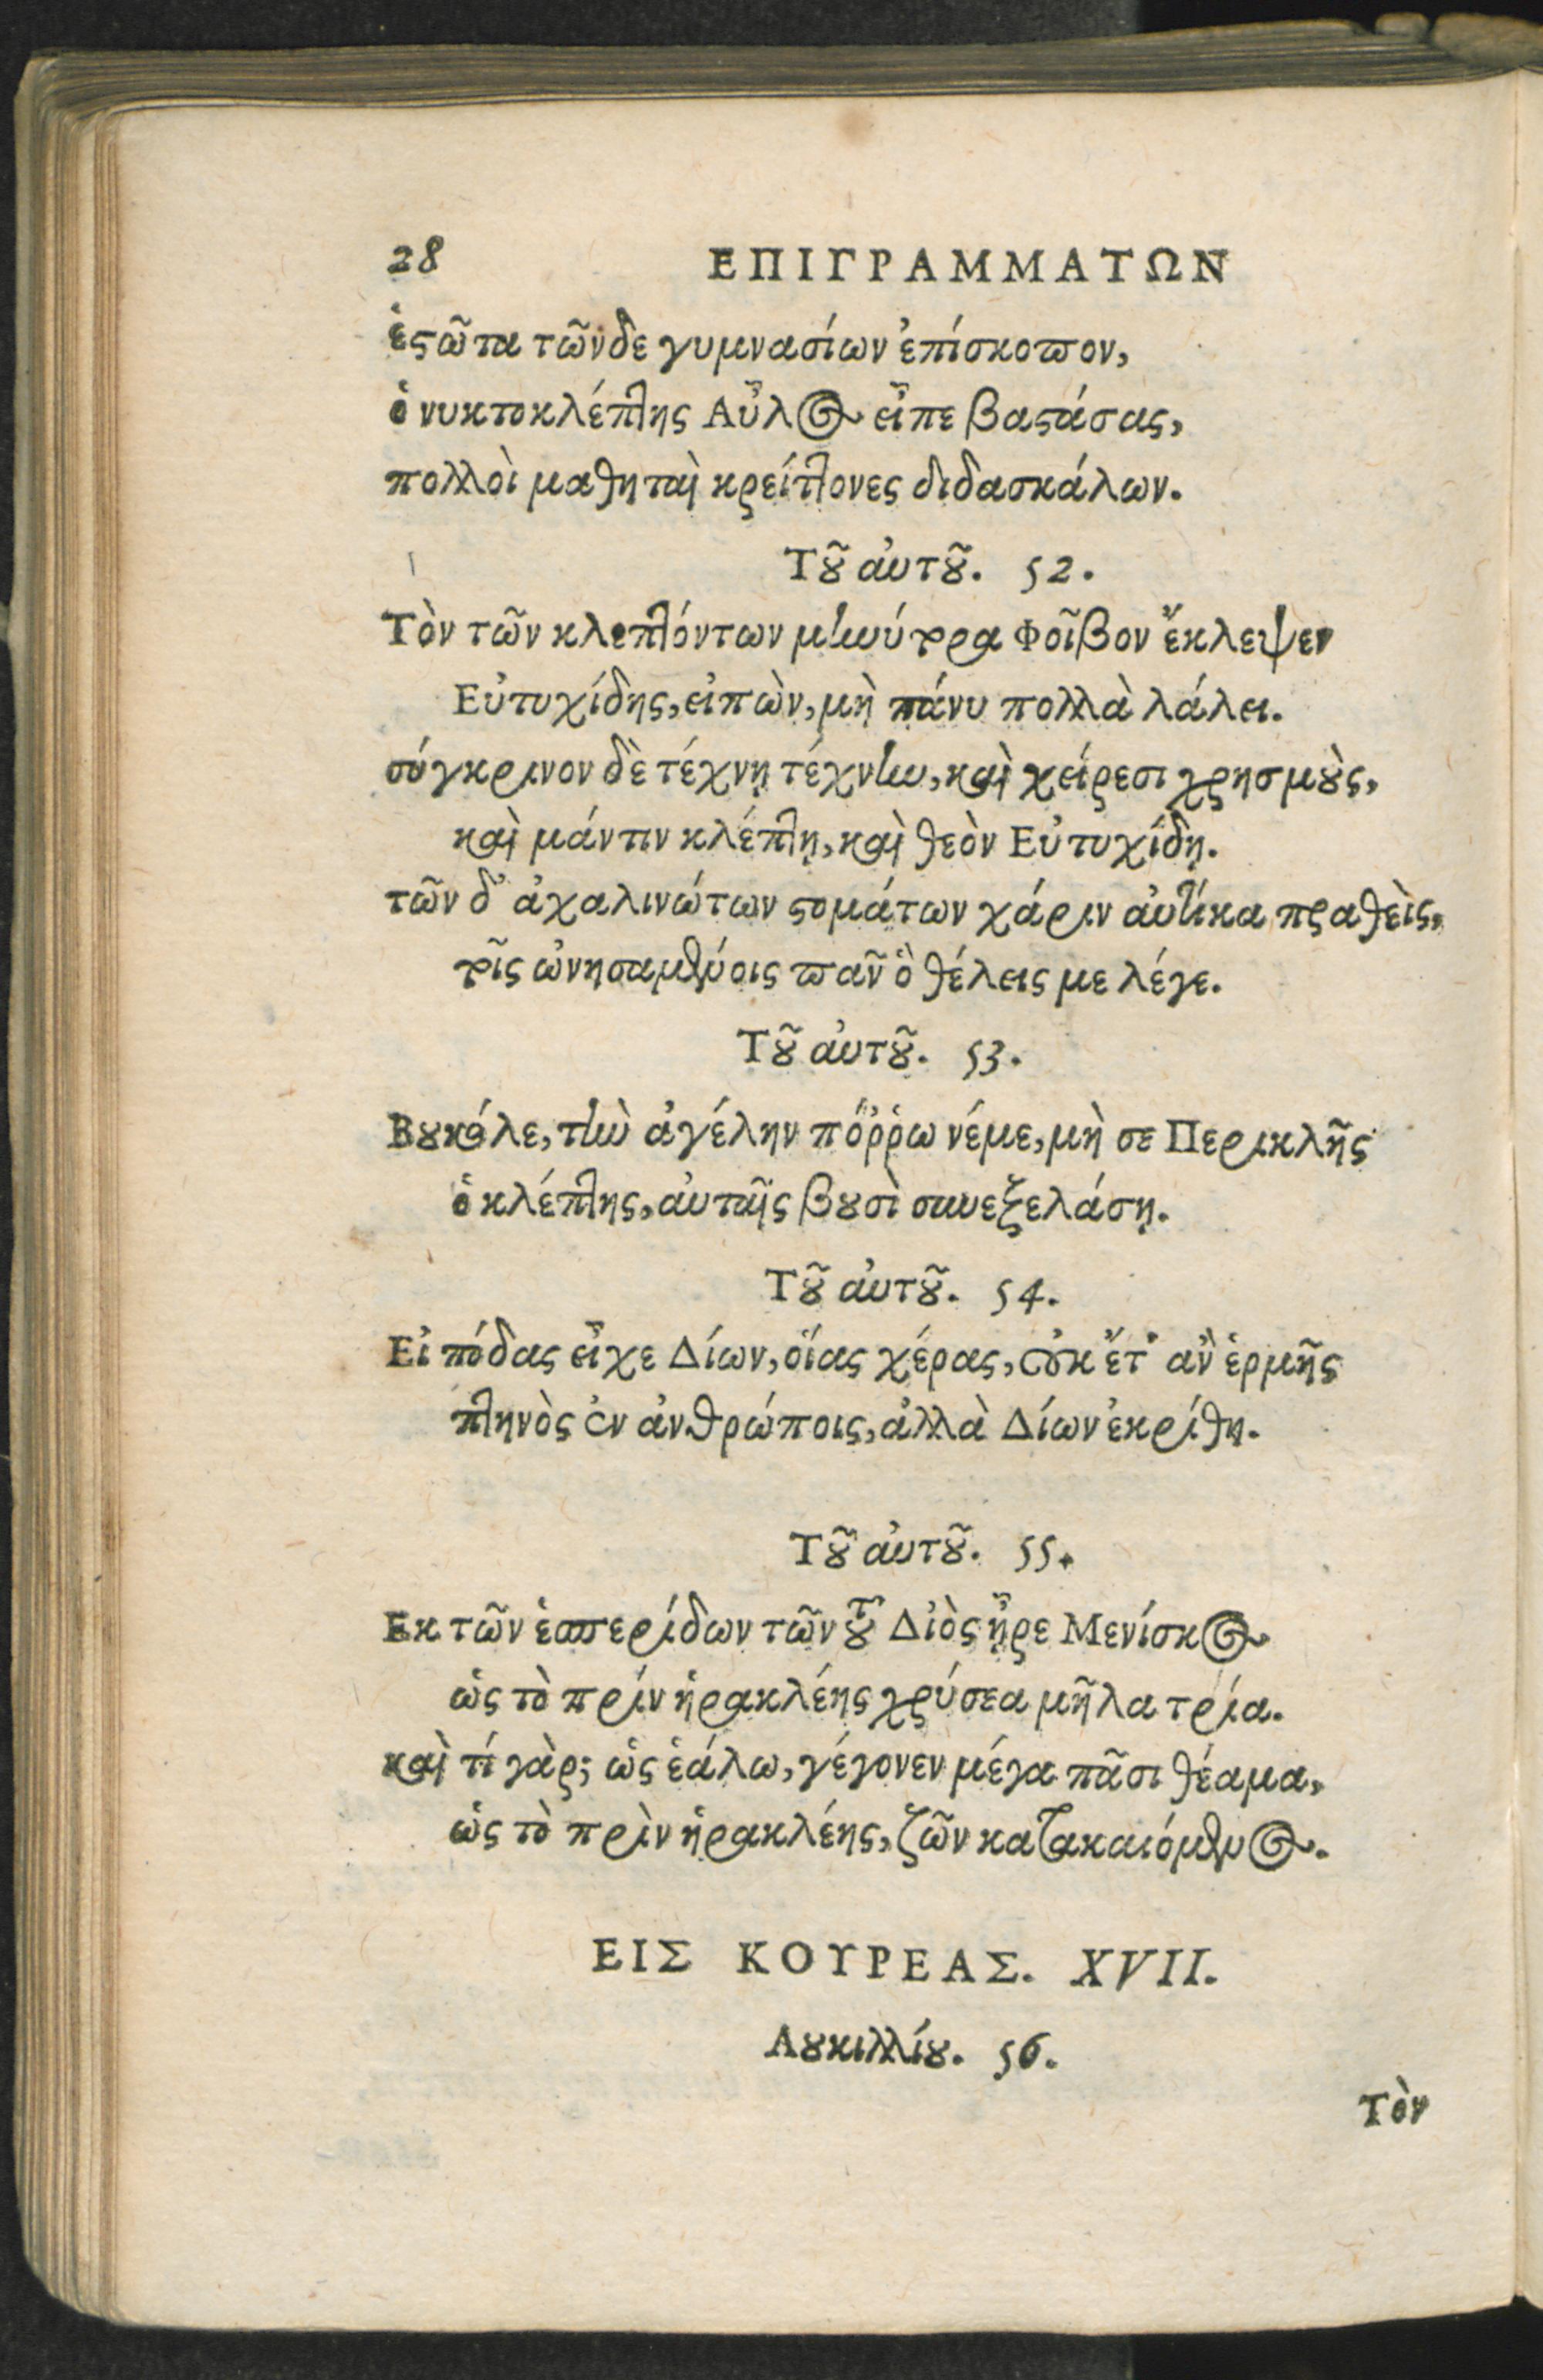 28 ΕΠΙΓΡΑΜΜΑΤΩΝ
ἑστῶτα τῶνδε γυμνασίων ἐπίσκοπον,
ὁ νυκτοκλέπτης Αὖλος εἶπε βαστάσας,
πολλοὶ μαθηταὶ κρείττονες διδασκάλων.
Τοῦ αὐτοῦ. 52.
Τὸν τῶν κλεπτόντων μηνύτορα Φοῖβον ἔκλεψεν
Εὐτυχίδης, εἰπὼν, μὴ πάνυ πολλὰ λάλει.
σύγκρινον δὲ τέχνῃ τέχνην, καὶ χείρεσι χρησμοὺς,
καὶ μάντιν κλέπτῃ, καὶ θεὸν Εὐτυχίδῃ.
τῶν δ' ἀχαλινώτων στομάτων χάριν αὐτίκα πραθεὶς,
τοῖς ὠνησαμένοις πᾶν ὃ θέλεις με λέγε.
Τοῦ αὐτοῦ. 53.
Βουκόλε, τὴν ἀγέλην πόῤῥω νέμε, μὴ σε Περικλῆς
ὁ κλέπτης, αὐταῖς βουσὶ συνεξελάσῃ.
Τοῦ αὐτοῦ. 54.
Εἰ πόδας εἶχε Δίων, οἵας χέρας, οὐκ ἔτ' ἂν ἑρμῆς
πτηνὸς ἐν ἀνθρώποις, ἀλλὰ Δίων ἐκρίθη.
Τοῦ αὐτοῦ. 55.
Εκ τῶν ἑσπερίδων τῶν τοῦ Διὸς ἦρε Μενίσκος
ὡς τὸ πρίν ἡρακλέης χρύσεα μῆλα τρία.
καὶ τί γὰρ; ὡς ἑάλω, γέγονεν μέγα πᾶσι θέαμα,
ὡς τὸ πρὶν ἡρακλέης, ζῶν κατακαιόμενος.
ΕΙΣ ΚΟΥΡΕΑΣ. XVII.
Λουκιλλίου. 56.
Τὸν